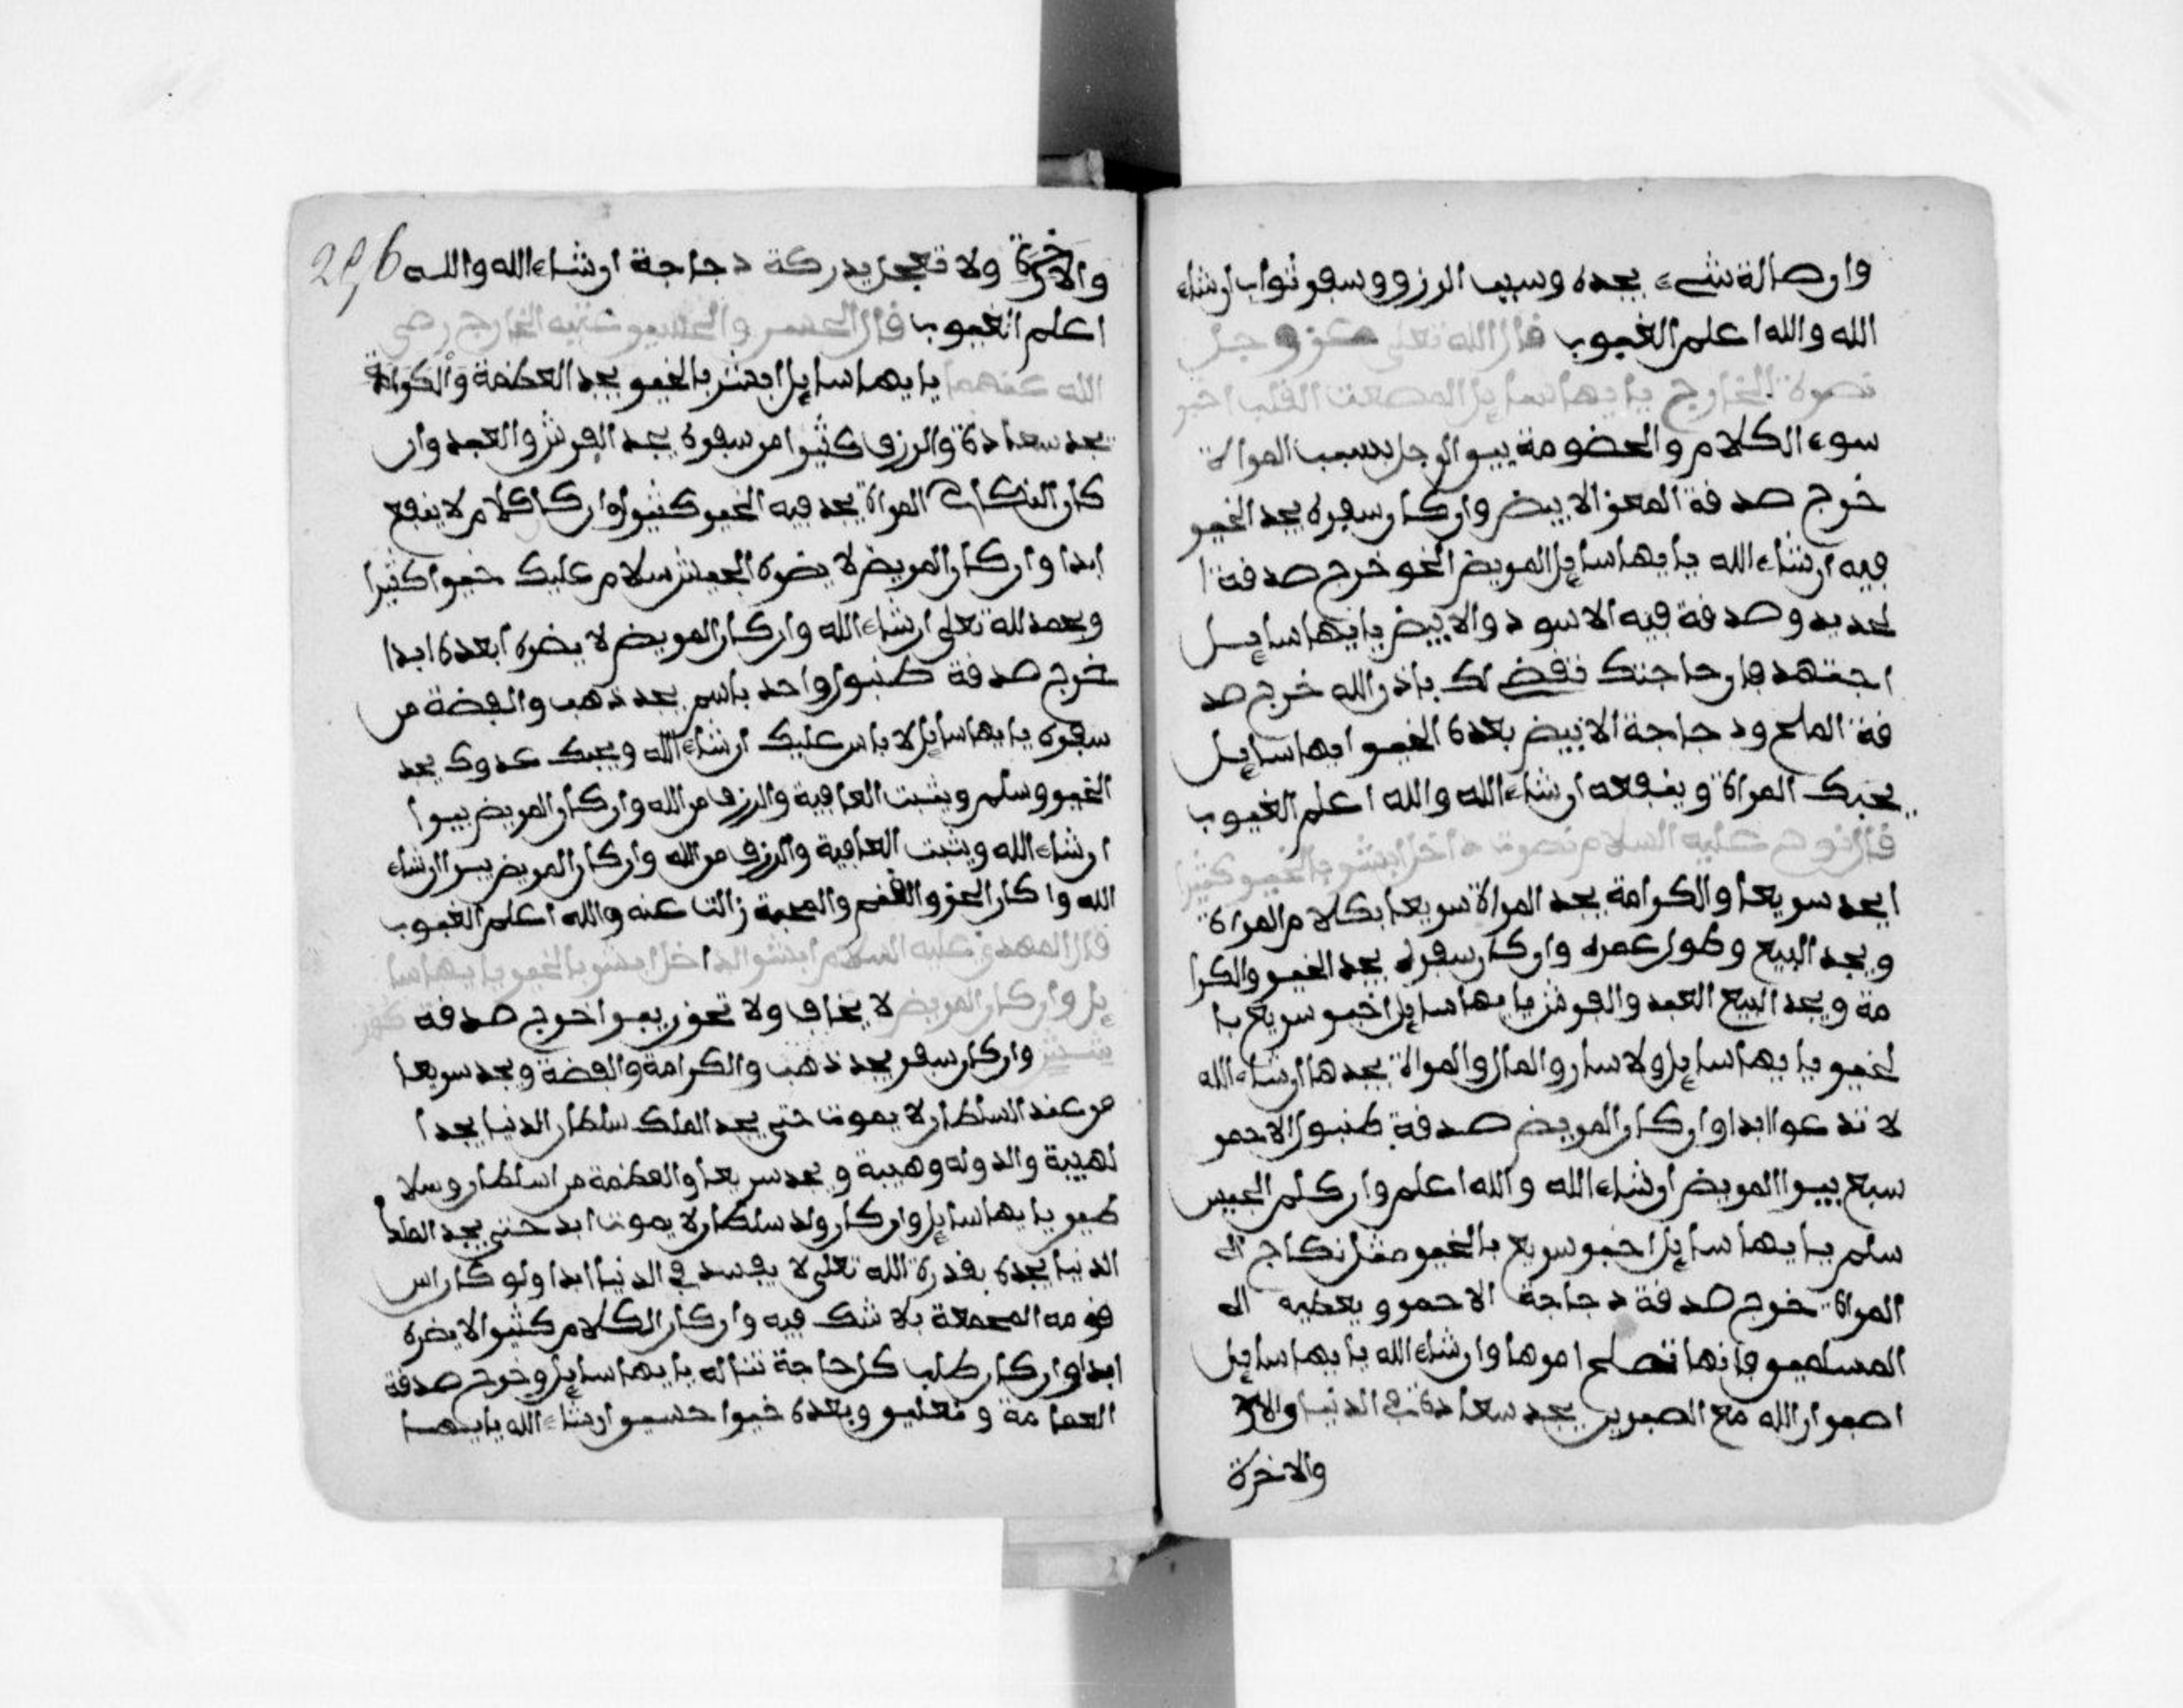 وان صالة شيء يجده وسبب الرزق وسفر ثواب ان شاء
الله والله اعلم الغيوب قال الله تعلى عز وجل
نصرة الخارج يا يها سايل القلب اخبر
سوء الكلام والخضومة بين الرجل بسبب المراة
خرج صدفة المعز الابيض وان كان سفره يجد الخير
فيه ان شاء الله يا يها سايل المريض الخو خرج صدفة ا
لحديد وصدفة فيه الاسود والابيض يا يها سايل
اجتهد فان حاجتك تقض لك باذن الله خرج صد
فة الملح ودجاجة الابيض بعده الخير ايها سايل
يحبك المراة وينفعه ان شاء الله والله اعلم الغيوب
قال نوح عليه السلام نصرت داخل ابشر بالخير كثيرا
ايجد سريعا والكرامة يجد المراة سريعا بكلام المراة
ويجد البيع وطول عمره وان كان سفره يجد الخير والكرا
مة ويجد البيع العبد والفرش يا يها سايل اخبر سريع با
لخير يا يها سايل ولا سار والمال والمراة يجدها ان شاء الله
لا تدعوا ابدا وان كان المريض صدفة طنبور الاحمر
سبع يبرا المريض ان شاء الله والله اعلم وان كلم
سلم يا يها سايل اخبر سريع بالخير مثل نكاح ال
المراة خرج صدفة دجاجة الاحمر ويعطيه ال
المسلمين فانها تصلح امرها وان شاء الله يا يها سايل
اصبر ان الله مع الصبرين يجد سعادة في الدنيا والاخر
والاخرة
والاخرة ولا تعجل يدركة دجاجة ان شاء الله والله
اعلم الغيوب قال الحسن والحسين عتبه الخارج رضي
الله عنهما يا يها سايل ابشر بالخير يجد العظمة والكرامة
يجد سعادة والرزق كثيرا من سفره يجد الفرش والعبد وان
كان النكاح المراة يجد فيه الخير كثيرا وان كا كلام لا ينفع
ابدا وان كان المريض لا يضره الجيش سلام عليك خيرا كثيرا
وبحمد لله تعلى ان شاء الله وان كان المريض لا يضره ابعده ابدا
خرج صدفة طنبور واحد باسم يجد ذهب والفضة من
سفره يا يها سايل لا باس عليك ان شاء الله ويحبك عدوك يجد
الخير وسلم ويثبت العافية والرزق من الله وان كان المريض يبرا
ان شاء الله ويثبت العافية والرزق من الله وان كان المريض يبرا ان شاء
الله وا كان الحز والغم والمحبة زالت عنه والله اعلم الغيوب
قال المهدي عليه السلام ابشر الداخل ابشر بالخير يا يها سا
يل وان كان المريض لا يخاف ولا تحزن يبرا اخرج صدفة
وان كان سفر يجد ذهب والكرامة والفضة ويجد سريعا
من عند السلطان لا يموت حتى يجد الملك سلطان الدنيا يجد ا
لهيبة والدوله وهيبة ويجد سريعا والعظمة من اسلطان وسلا
طين يا يها سايل وان كان ولد سلطان لا يموت ابد حتى يجد الملد
الدنيا يجده بقدرة الله تعلى لا يفسد في الدنيا ابدا ولو كان راس
قومه المجمعة بلا شك فيه وان كان الكلام كثيرا لا يضره
ابدا وان كان طلب كل حاجة تناله يا يها سايل وخرج صدفة
العمامة ونعلين وبعده خيرا حسين ان شاء الله يا يها